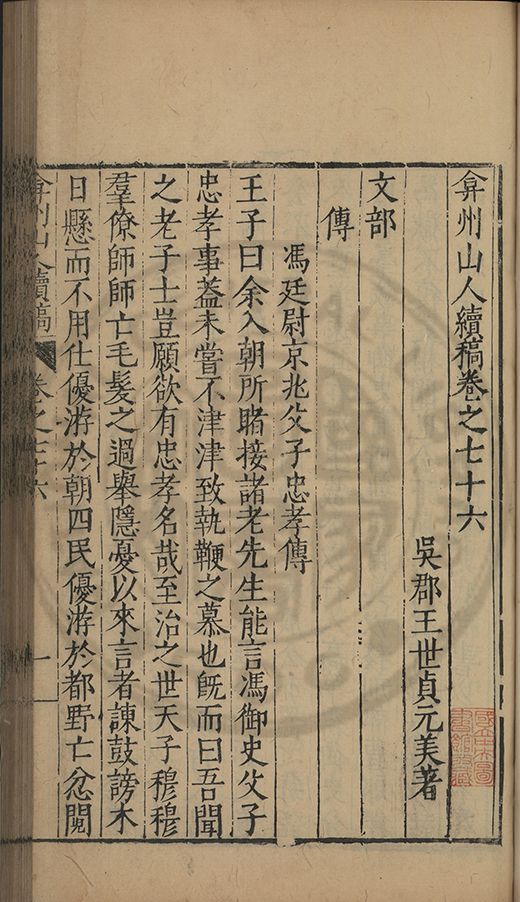 弇州山人續稿卷之七十六
吳郡王世貞元美著
文部
傳
馮廷尉京兆父子忠孝傳
王子曰余入朝所睹接諸老先生能言馮御史父子
忠孝事蓋未嘗不津津致執鞭之慕也旣而曰吾聞
之老子士豈願欲有忠孝名哉至治之世天子穆穆
羣僚師師亡毛髮之過舉隱憂以來言者諫鼓謗木
日懸而不用仕優游於朝四民優游於都野亡忿鬩
弇州山人續稿 卷之七十六 一
國立中央圖書館藏